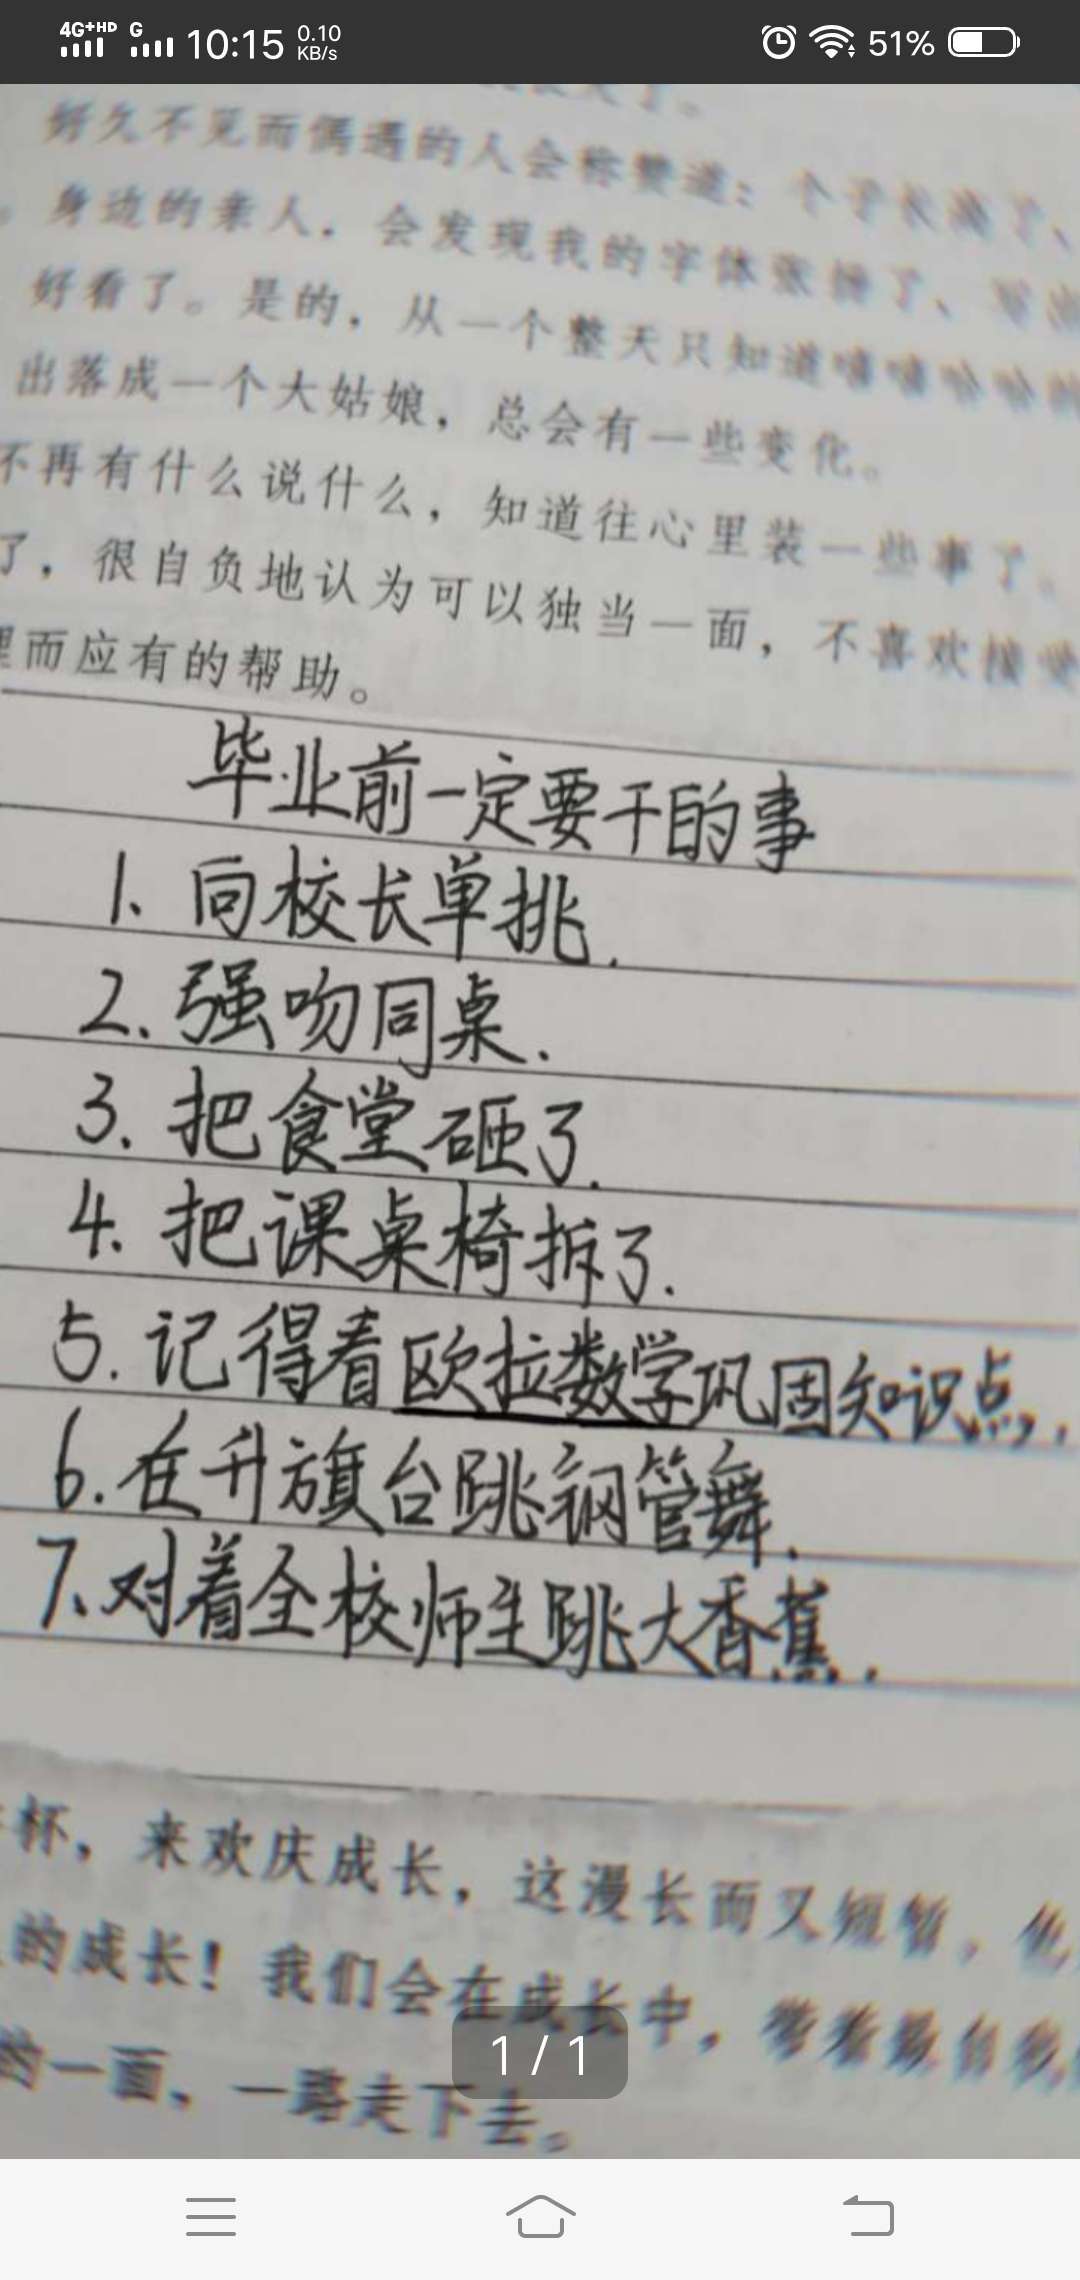 4G+HD G 10:15 0.10 KB/s 51%
好久不见而偶遇的人会称赞道：个子长高了、
。身边的亲人，会发现我的字体张扬了、写出
好看了。是的，从一个整天只知道嘻嘻哈哈的
出落成一个大姑娘，总会有一些变化。
不再有什么说什么，知道往心里装一些事了。
了，很自负地认为可以独当一面，不喜欢接受
而应有的帮助。
毕业前一定要干的事
1、向校长单挑.
2.强吻同桌.
3.把食堂砸了.
4.把课桌椅拆了.
5.记得看欧拉数学巩固知识点,
6.在升旗台跳钢管舞.
7、对着全校师生跳大香蕉.
杯，来欢庆成长，这漫长而又短暂，
的成长！我们会在成长中，带着最自我
的一面、一路走下去。
1/1